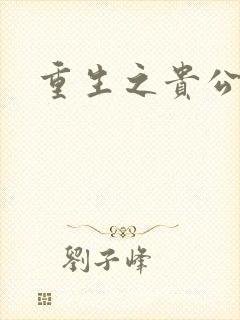 重生之貴公
劉子峰